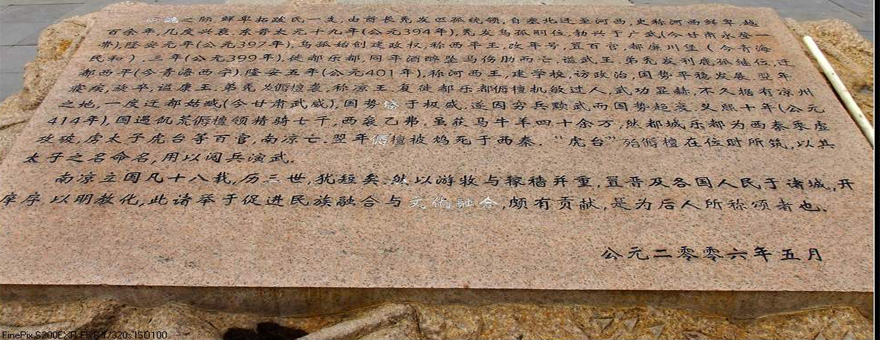 之际,鲜卑拓跋氏一支,由酋长秃发匹孤统领,自塞北迁至河西,史称河西鲜卑.越
百余年,几度兴衰.东晋太元十九年(公元394年),秃发乌孤嗣位,勃兴于广武(今甘肃永登一
带),隆安元年(公元397年),乌孤始创建政权,称西平王,改年号,置百官,都廉川堡(今青海
民和).三年(公元399年),徙都乐都.同年酒醉坠马伤肋而亡,谥武王.弟秃发利鹿孤继位,迁
都西平(今青海西宁).隆安五年(公元401年),称河西王,建学校,访政治,国势平稳发展.翌年
疾,旋卒,谥康王.弟秃发傉檀袭,称凉王,复徙都乐都傉檀机敏过人,武功显赫,不久据有凉州
之地,一度迁都姑臧(今甘肃武威),国势于极盛.遂因穷兵黩武而国势超衰.义熙十年(公元
414年),国遇饥荒傉檀领精骑七千,西袭乙弗,虽获马牛羊四十余万,然都城乐都为西秦乘虚
攻破,虏太子虎台等百官,南凉亡.翌年傉檀被鸩死于西秦."虎台"殆傉檀在位时所筑,以其
太子之名命名,用以阅兵演武.
南凉立国凡十八载,历三世,犹短矣.然以游牧与稼穑并重,置晋及各国人民于诸城,开
庠序以明教化,此诸举于促进民族融合与文化融合,颇有贡献,是为后人所称颂者也.
公元二零零六年五月
FinePix S200EXR F8.0 1/320s ISO100